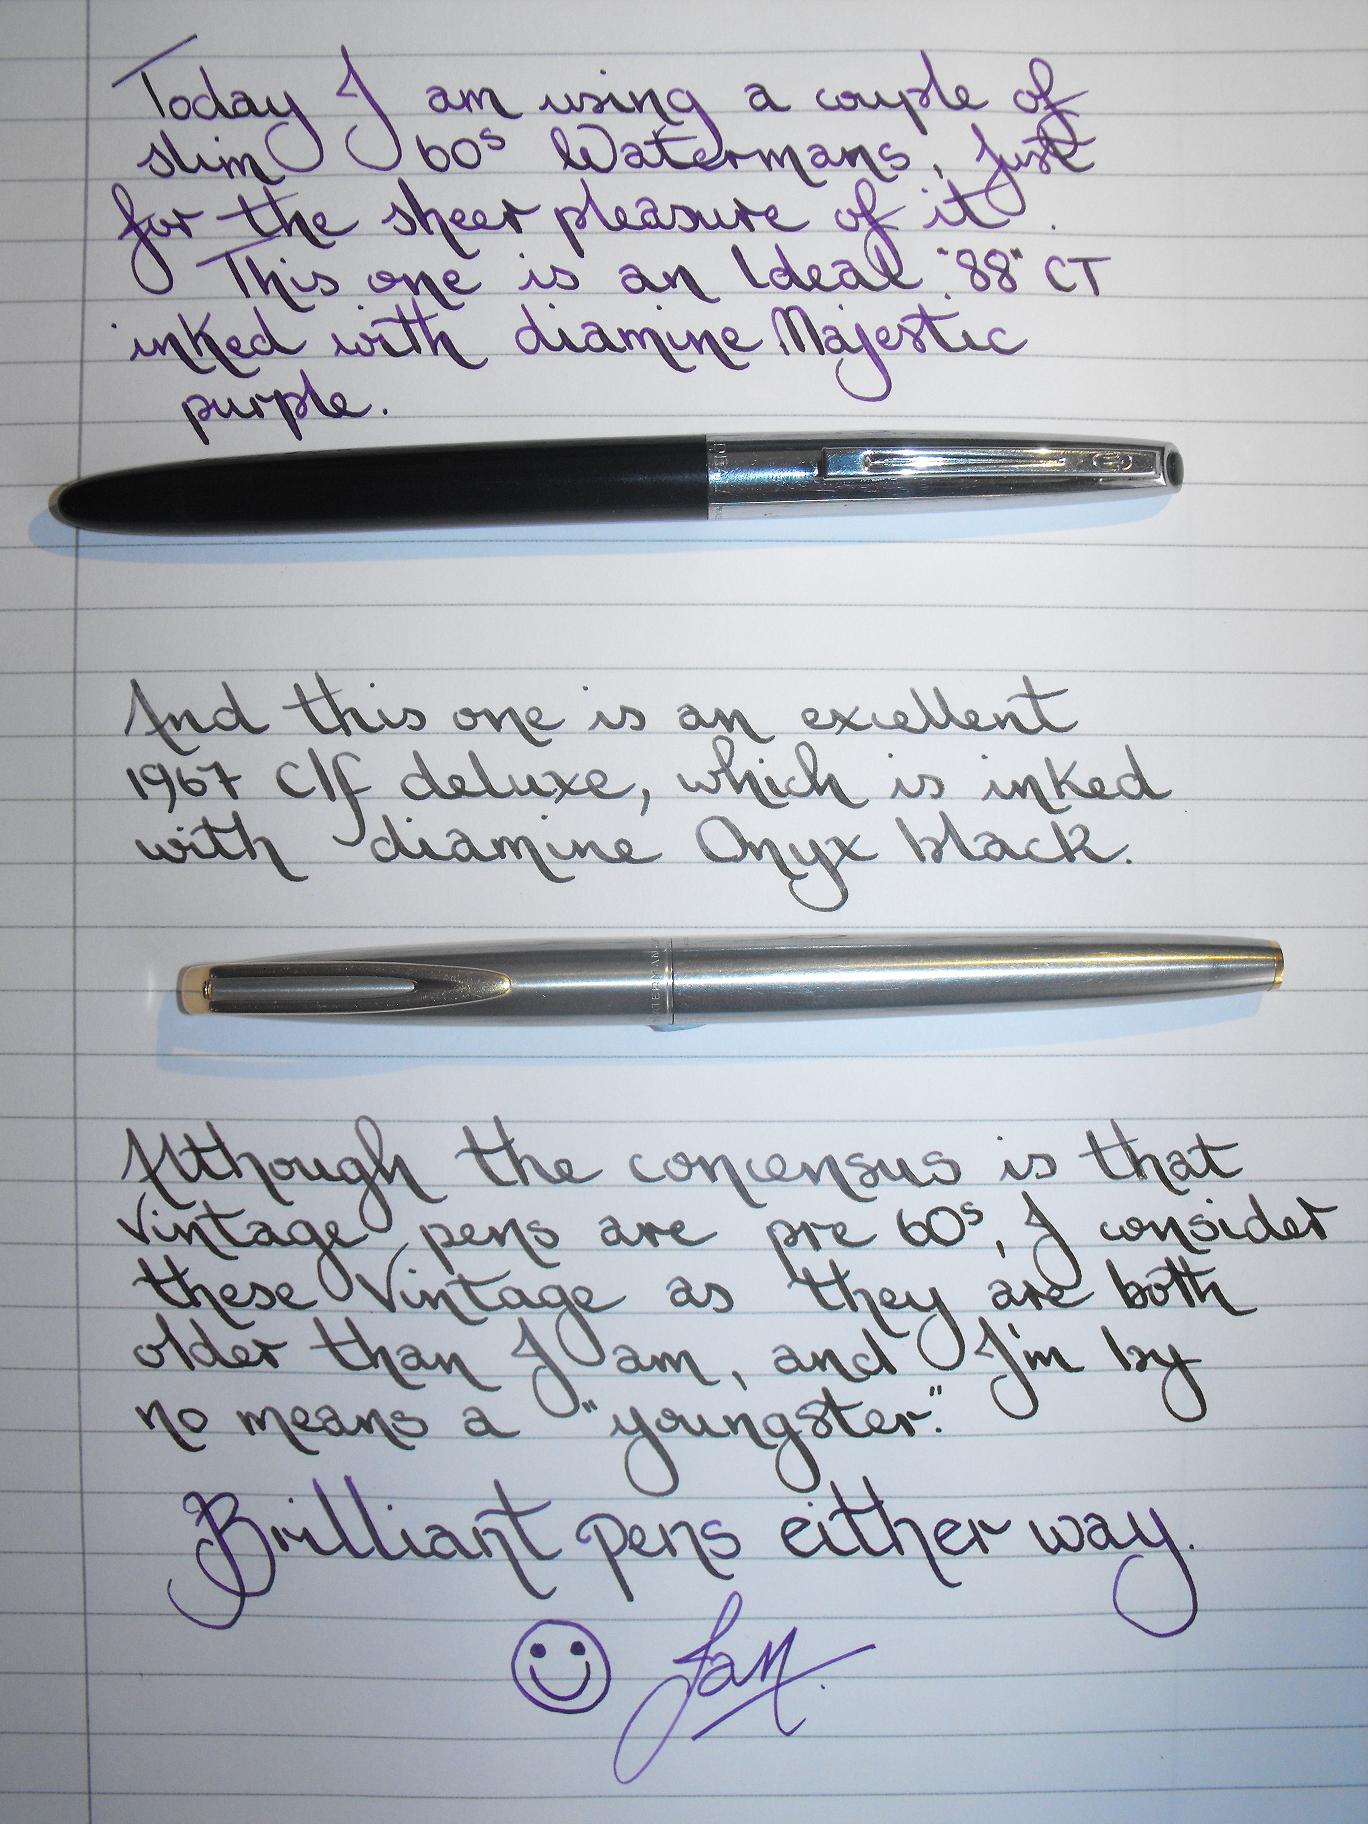 Today I am using a couple of
slim 60s Watermans, just
for the sheer pleasure of it.
This one is an Ideal "88" CT
inked with diamine Majestic
purple.
And this one is an excellent
1967 C/f deluxe, which is inked
with diamine Onyx black.
WATERMAN
Although the concensus is that
Vintage pens are pre 60s, I consider
these Vintage as they are both
older than I am, and I'm by
no means a "youngster."
Brilliant pens either way.
Jan.